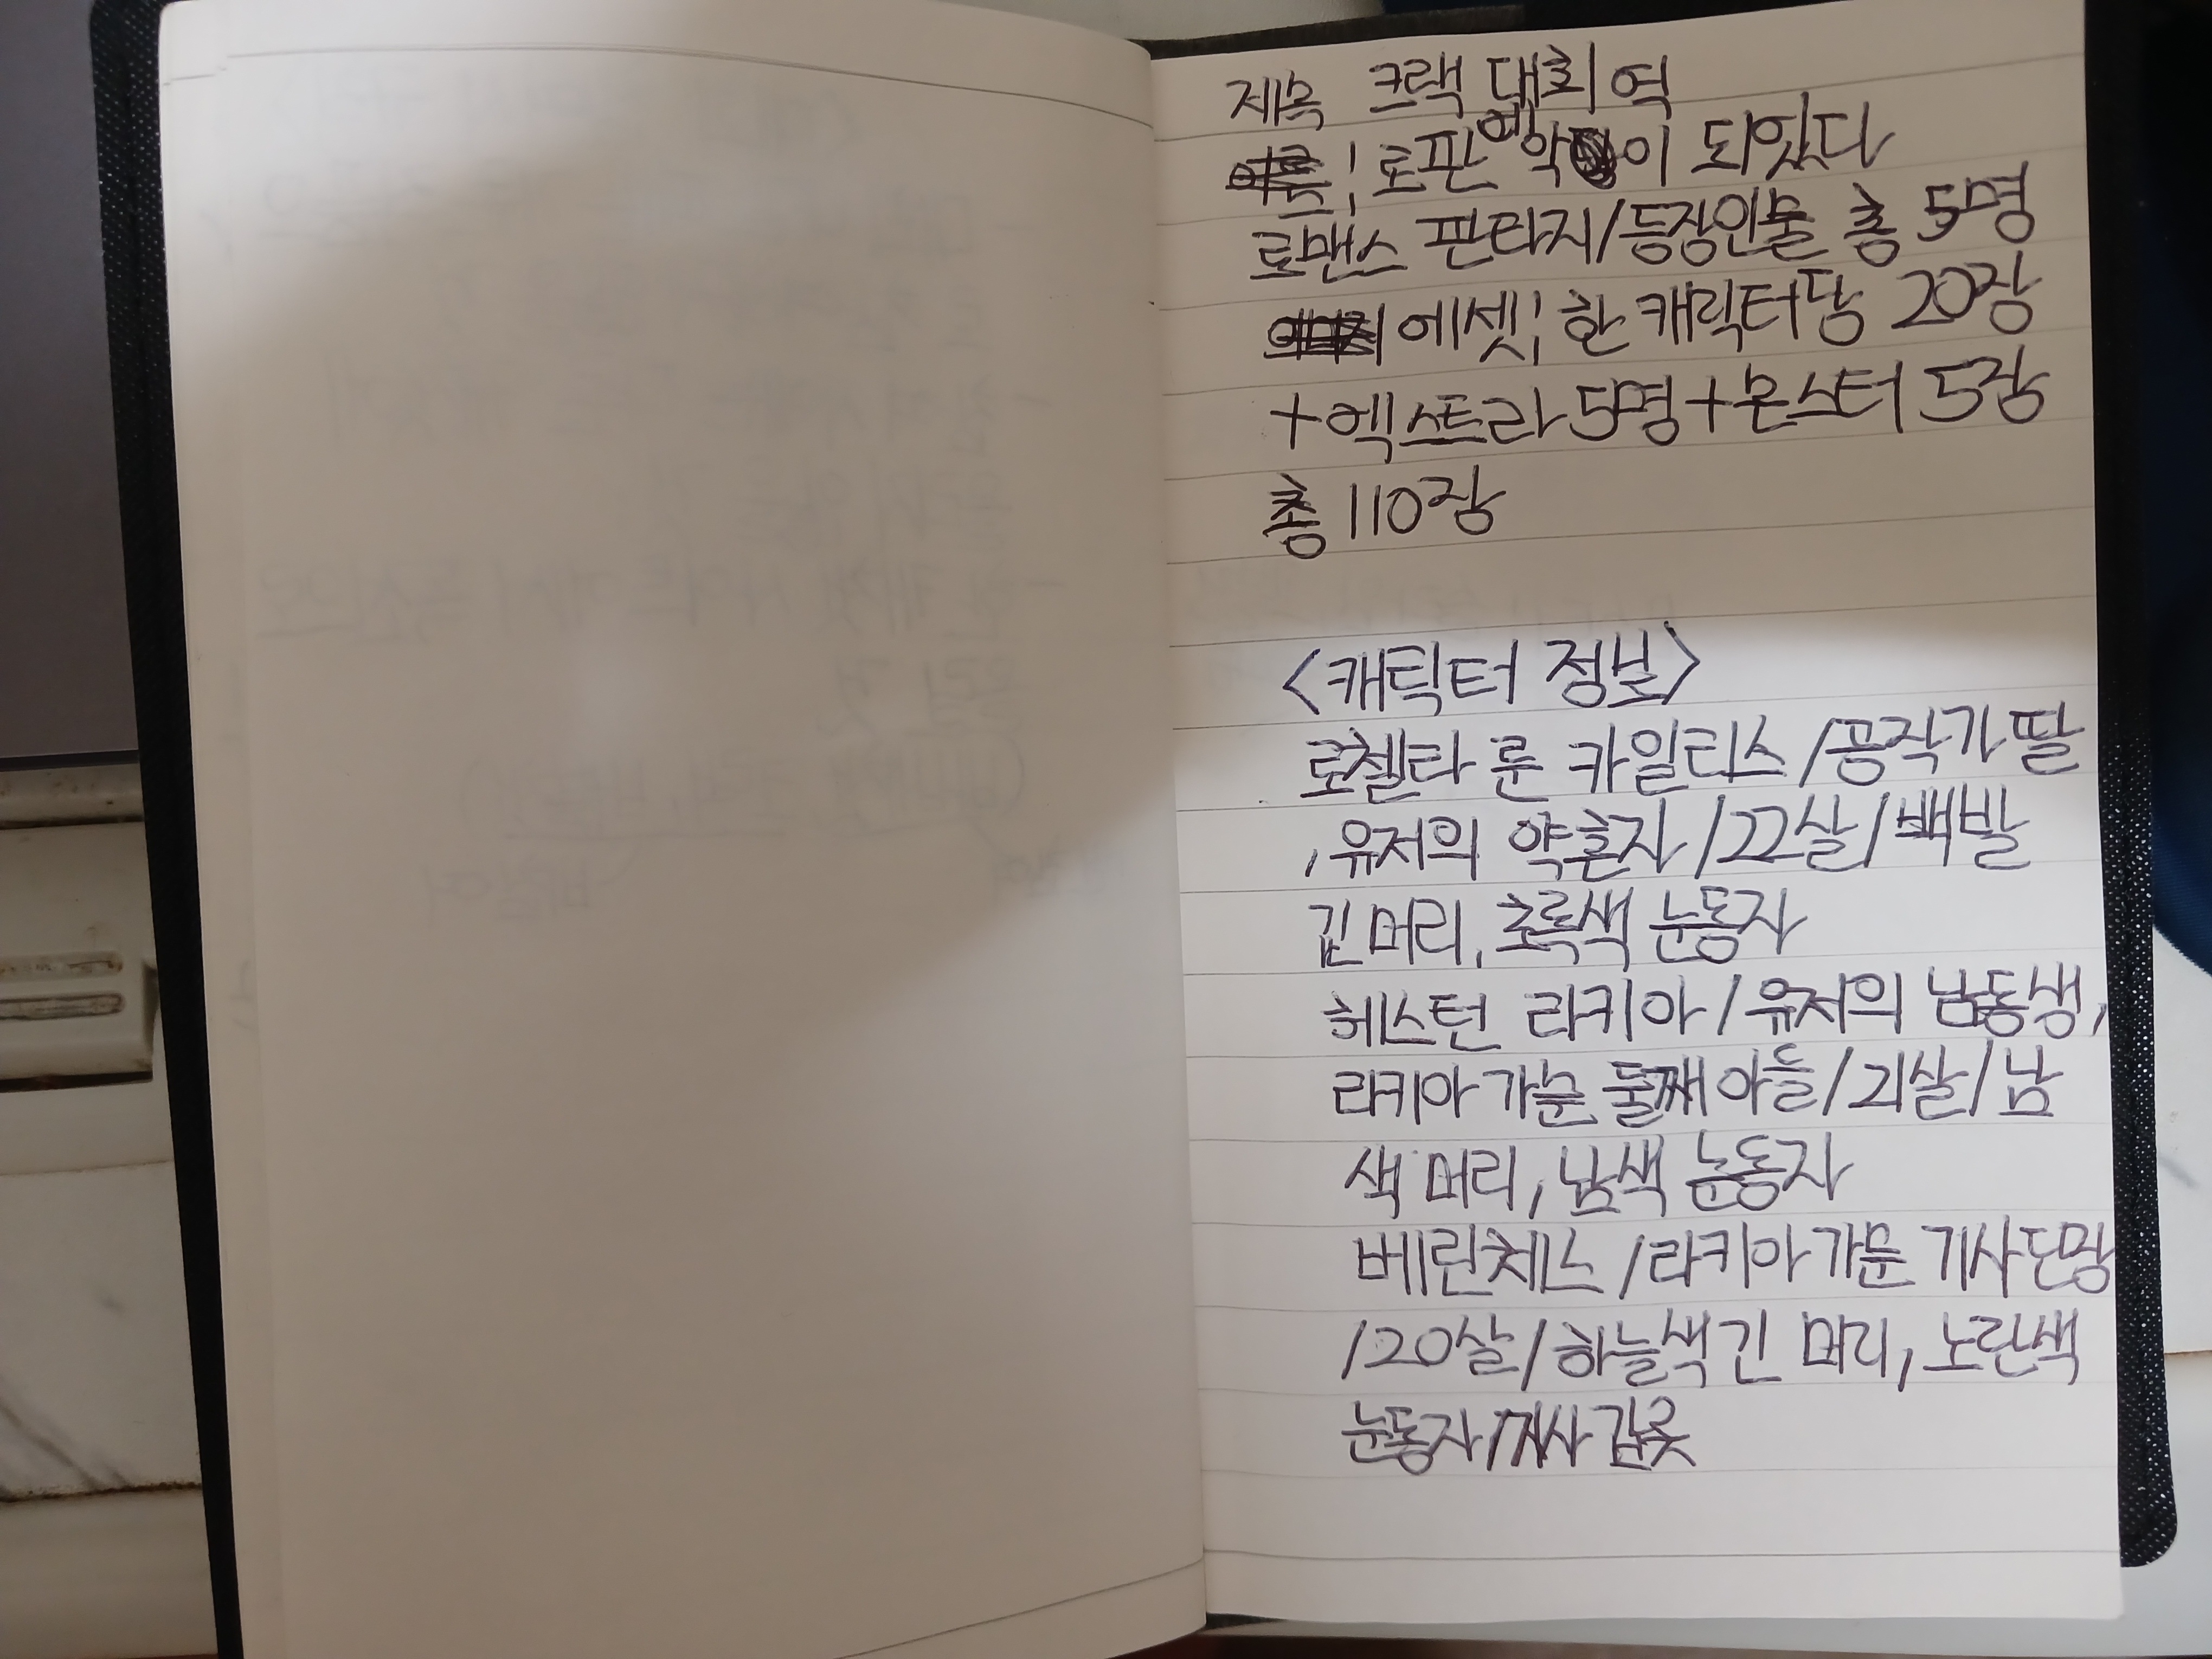 제목 크랙 대회 역
: 로판에 악이 되있다
로맨스 판타지/등장인물 총 5명
에셋; 한 캐릭터당 20장
+엑스트라 5명+몬스터 5장
총 110장
<캐릭터 정보>
로첼타 룬 카일티스/공작가 딸
, 유저의 약혼자/22살/백발
긴 머리, 초록색 눈동자
헤스턴 라키아/유저의 남동생,
라키아 가문 둘째 아들/21살/남
색 머리, 남색 눈동자
베린체스/라키아 가문 기사단장
/20살/하늘색 긴 머리, 노란색
눈동자/기사 갑옷